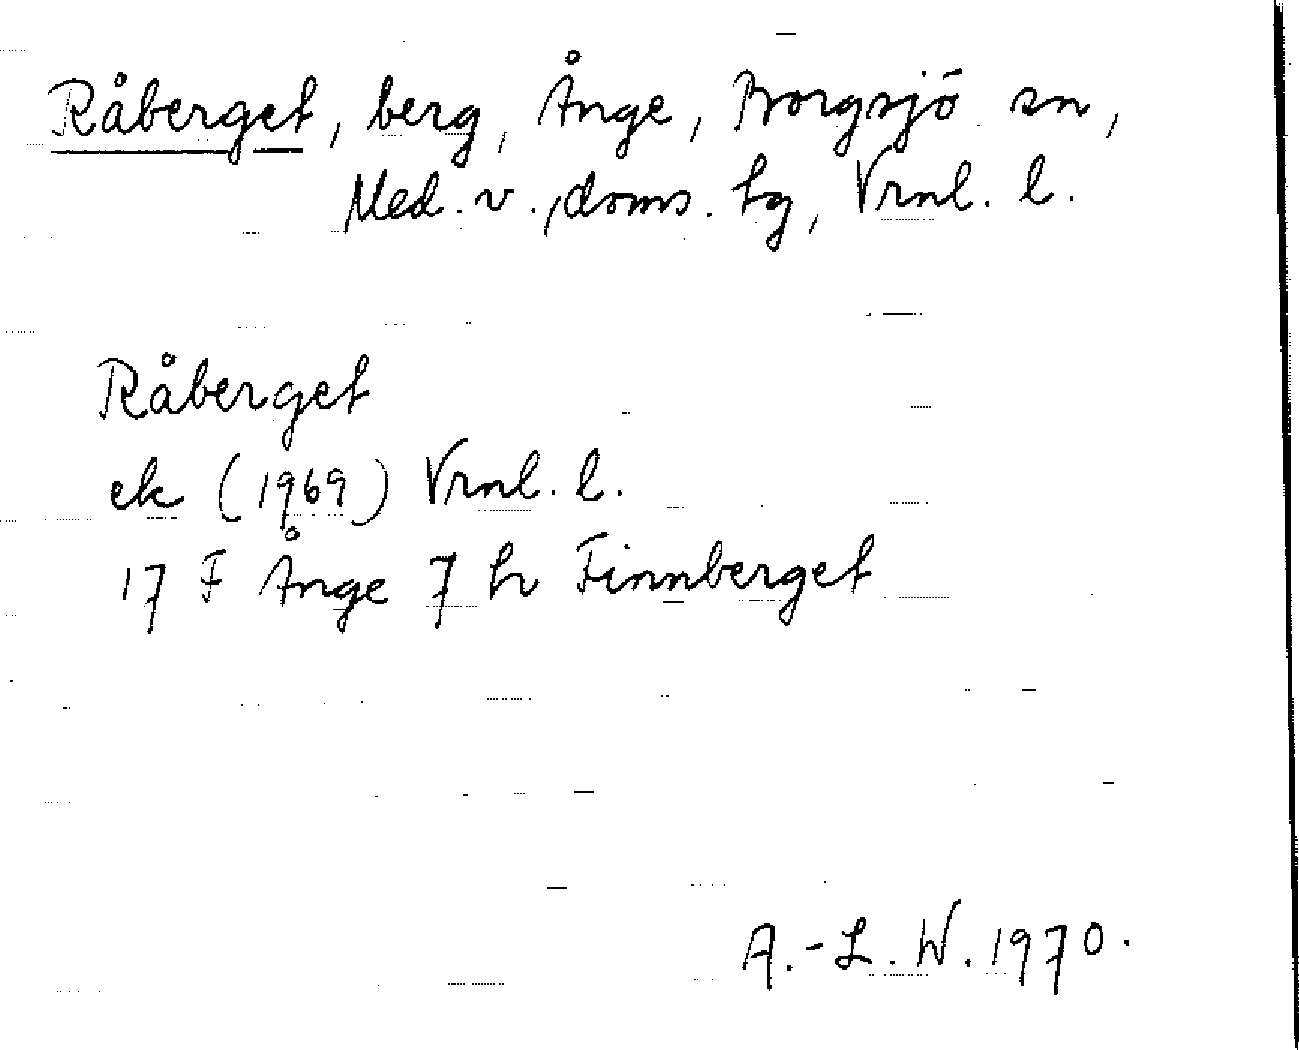 Råberget, berg, Ånge, Borgsjö sn,
Med. v., doms. hg, Vrnl. l.
Råberget
ek (1969) Vrnl. l.
17 F Ånge 7 h Finnberget
A.-L. W. 1970.